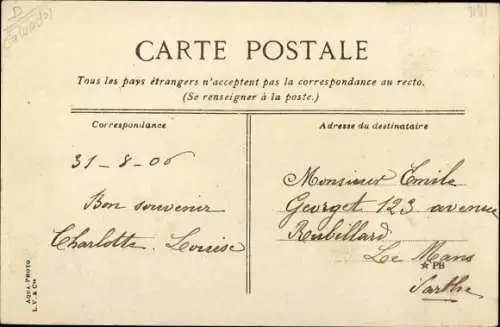 D
CARTE POSTALE
Tous les pays étrangers n'acceptent pas la correspondance au recto.
(Se renseigner à la poste.)
Correspondance
31-8-06
Bon souvenir
Charlotte. Louise
Adresse du destinataire
Monsieur Emile
Georget 123 avenue
Rubillard
Le Mans
★ PB
Sarthe
AQUA-PHOTO
L.V. & Cie